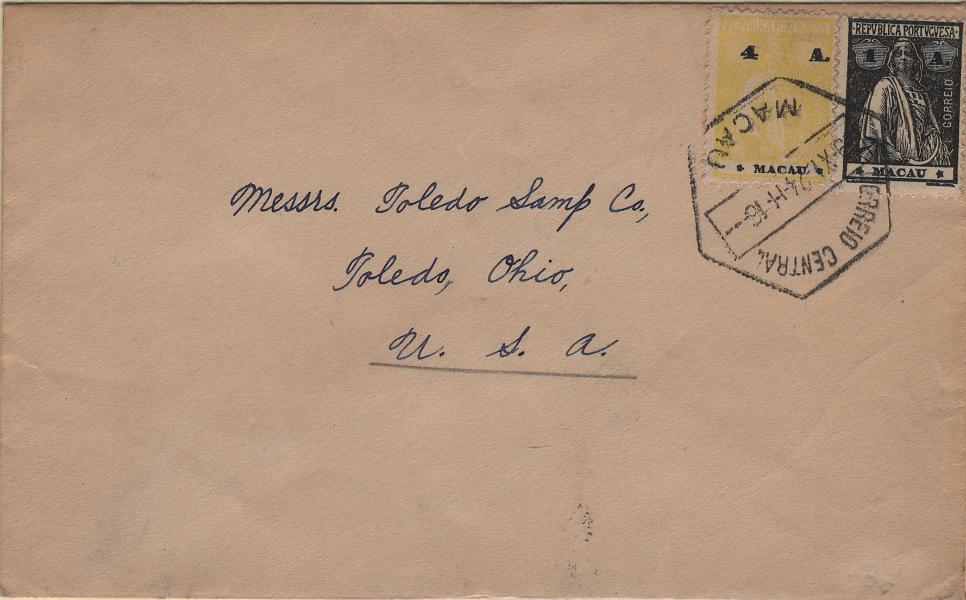 REPVBLICA PORTVGVESA
4 A.
MACAU
·REPVBLICA PORTVGVESA·
1 A
CORREIO
MACAU
MACAU
CORREIO CENTRAL
Messrs. Toledo Samp Co.,
Toledo, Ohio,
U. S. A.